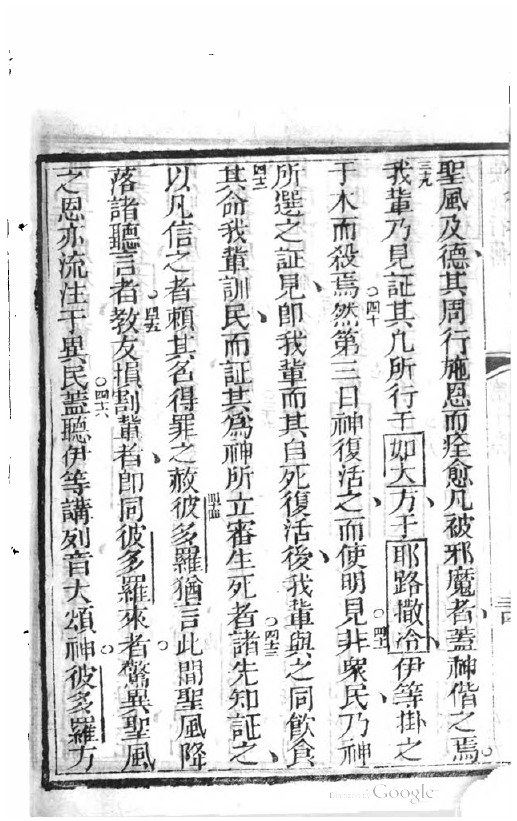 聖風及德其周行施恩而痊愈凡被邪魔者蓋神偕之焉。
三九我輩乃見証其凡所行于如大方于耶路撒冷伊等掛之
于木而殺焉。四十然第三日神復活之而使明見。四一非衆民乃神
所選之証見即我輩而其自死復活後我輩與之同飲食
四二其命我輩訓民而証其為神所立審生死者。四三諸先知証之
以凡信之者賴其名得罪之赦四四彼多羅猶言此間聖風降
落諸聽言者。四五教友損割輩者即同彼多羅來者驚異聖風
之恩亦流注于異民。四六蓋聽伊等講列音大頌神。彼多羅方
Digitized by Google